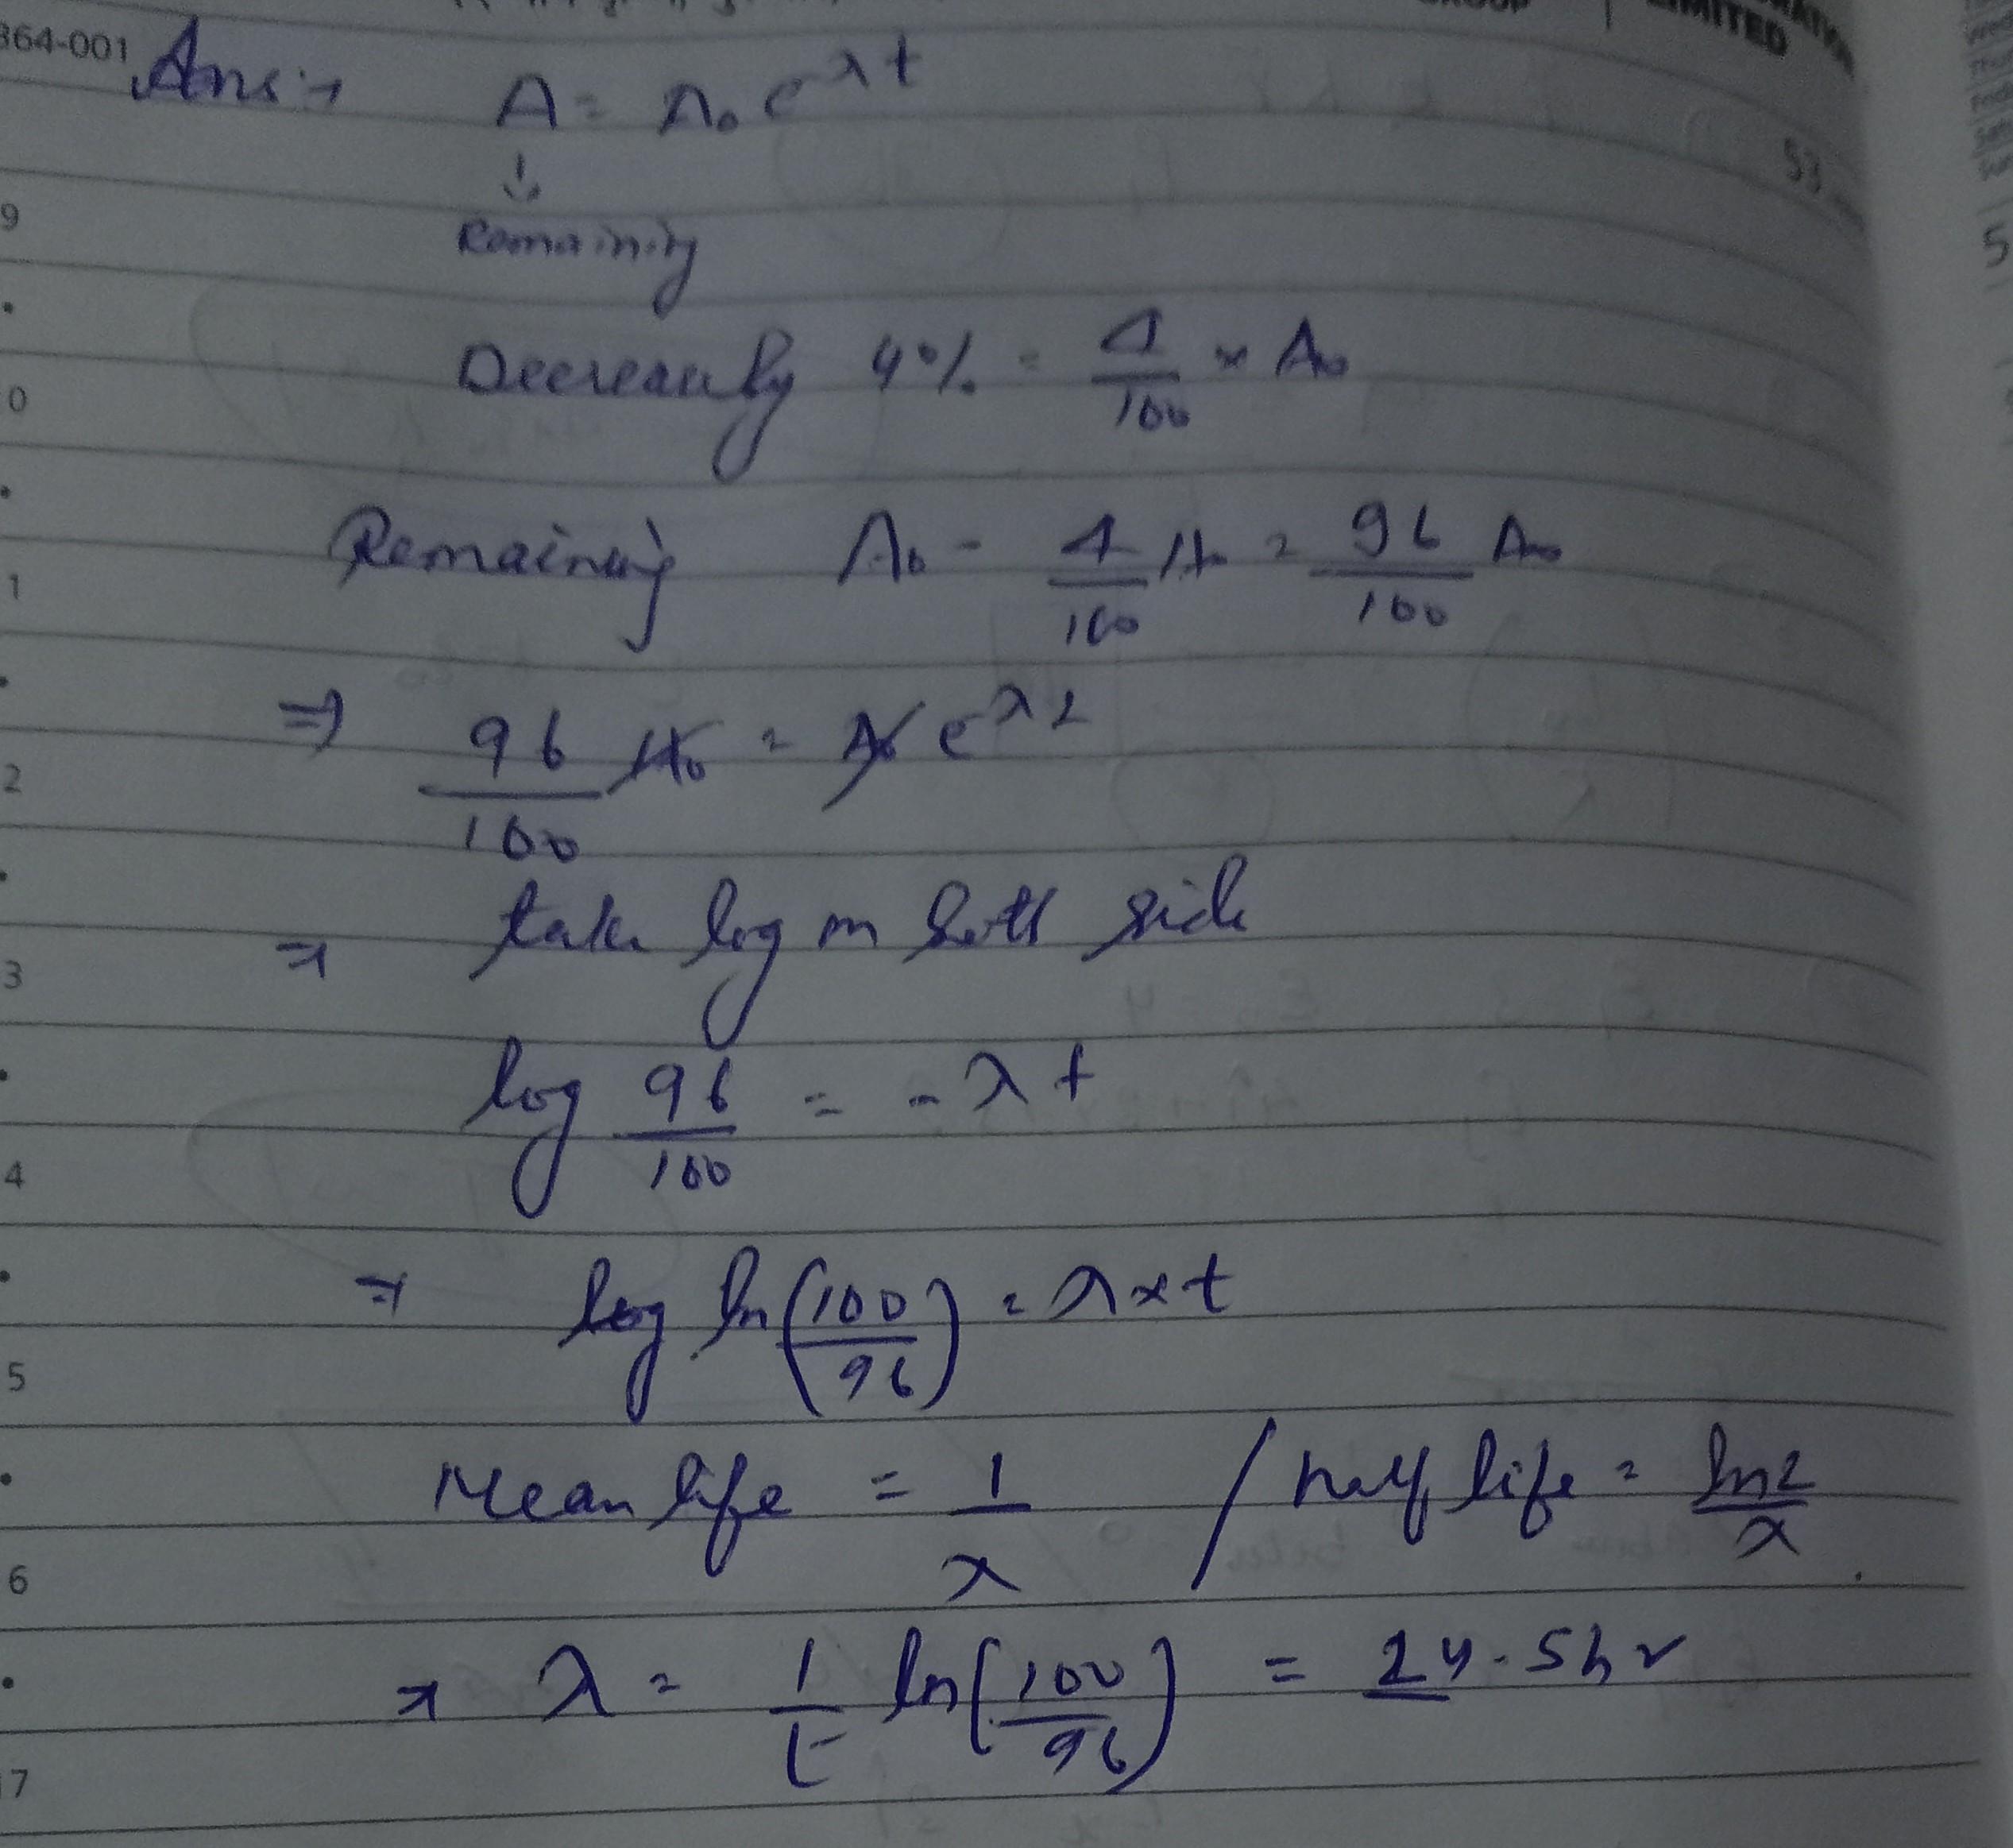 364-001
LIMITED
Ans:→ A = A₀ e^λt
↓
Remaining
Decreasely 4% = 4/100 × A₀
Remaining A₀ - 4/100 A₀ = 96/100 A₀
⇒ 96/100 A₀ = A₀ e^λt
⇒ take log on both side
log 96/100 = - λ t
⇒ log ln(100/96) = λ × t
Mean life = 1/λ / half life = ln2/λ
⇒ λ = 1/t ln(100/96) = 24.5hr
9
0
1
2
3
4
5
6
17
53
5